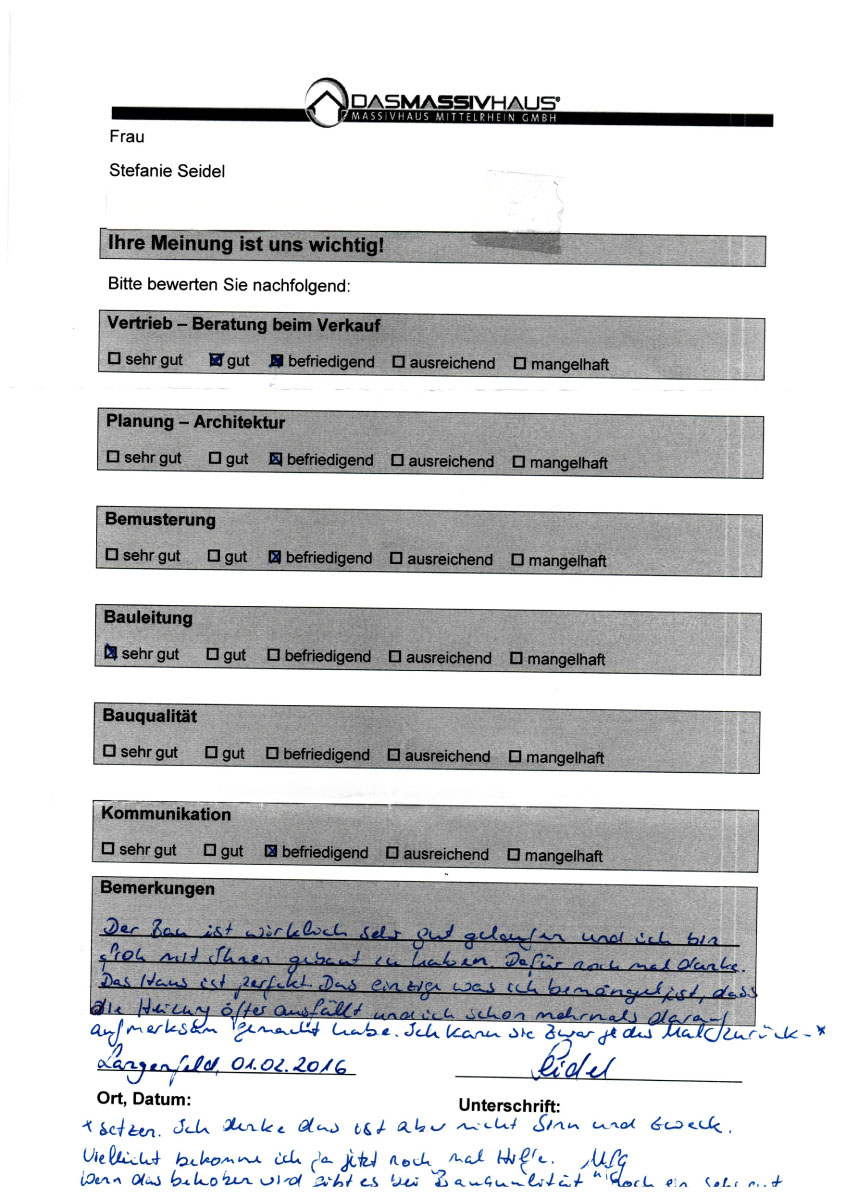 DASMASSIVHAUS®
MASSIVHAUS MITTELRHEIN GMBH
Frau
Stefanie Seidel
Ihre Meinung ist uns wichtig!
Bitte bewerten Sie nachfolgend:
Vertrieb – Beratung beim Verkauf
☐ sehr gut ☒ gut ☒ befriedigend ☐ ausreichend ☐ mangelhaft
Planung – Architektur
☐ sehr gut ☐ gut ☒ befriedigend ☐ ausreichend ☐ mangelhaft
Bemusterung
☐ sehr gut ☐ gut ☒ befriedigend ☐ ausreichend ☐ mangelhaft
Bauleitung
☒ sehr gut ☐ gut ☐ befriedigend ☐ ausreichend ☐ mangelhaft
Bauqualität
☐ sehr gut ☐ gut ☐ befriedigend ☐ ausreichend ☐ mangelhaft
Kommunikation
☐ sehr gut ☐ gut ☒ befriedigend ☐ ausreichend ☐ mangelhaft
Bemerkungen
Der Bau ist wirklich sehr gut gelaufen und ich bin
froh mit Ihnen gebaut zu haben. Dafür noch mal danke.
Das Haus ist perfekt. Das einzige was ich bemängel ist, dass
die Heizung öfter ausfällt und ich schon mehrmals darauf
aufmerksam gemacht habe. Ich kann sie zwar jedes Mal zurück-*
Langenfeld, 01.02.2016 Seidel
Ort, Datum: Unterschrift:
* setzen. Ich denke das ist aber nicht Sinn und Zweck.
Vielleicht bekomme ich ja jetzt noch mal Hilfe. MfG
Wenn das behoben wird gibt es bei Bauqualität doch ein sehr gut